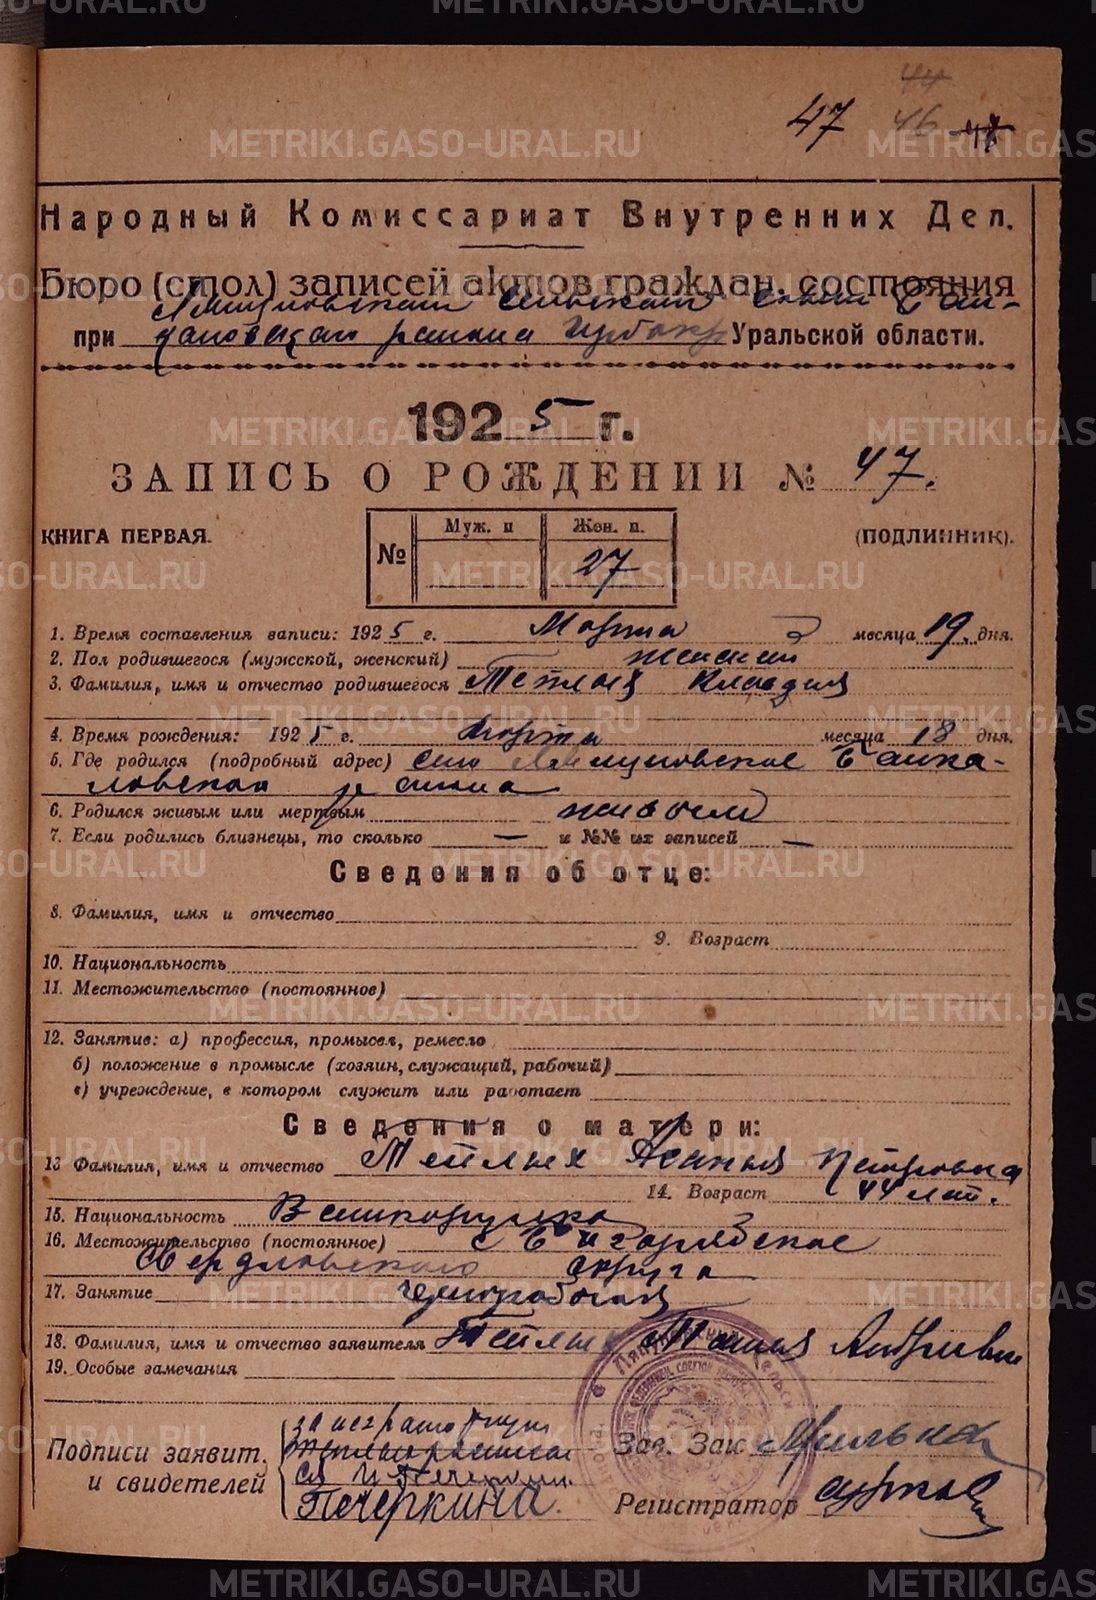 47 46 44
Народный Комиссариат Внутренних Дел.
Бюро (стол) записей актов граждан. состояния
при района Уральской области.
1925 г.
ЗАПИСЬ О РОЖДЕНИИ № 47.
КНИГА ПЕРВАЯ.
(ПОДЛИННИК).
№ Муж. п Жен. п.
27
1. Время составления записи: 1925 г. Марта месяца 19. дня.
2. Пол родившегося (мужской, женский) женский
3. Фамилия, имя и отчество родившегося Теплых Клавдия
4. Время рождения: 1925 г. Марта месяца 18 дня.
5. Где родился (подробный адрес) село
района
6. Родился живым или мертвым живым
7. Если родились близнецы, то сколько — и №№ их записей —
Сведения об отце:
8. Фамилия, имя и отчество
9. Возраст
10. Национальность
11. Местожительство (постоянное)
12. Занятие: а) профессия, промысел, ремесло
б) положение в промысле (хозяин, служащий, рабочий)
в) учреждение, в котором служит или работает
Сведения о матери:
13 Фамилия, имя и отчество Теплых Петровна
14. Возраст 44 лет.
15. Национальность Великорусска
16. Местожительство (постоянное) с.
Свердловского округа
17. Занятие
18. Фамилия, имя и отчество заявителя Теплых
19. Особые замечания
Подписи заявит. и свидетелей
за неграмотную
Печеркина
Зав. Загс
Регистратор
METRIKI.GASO-URAL.RU